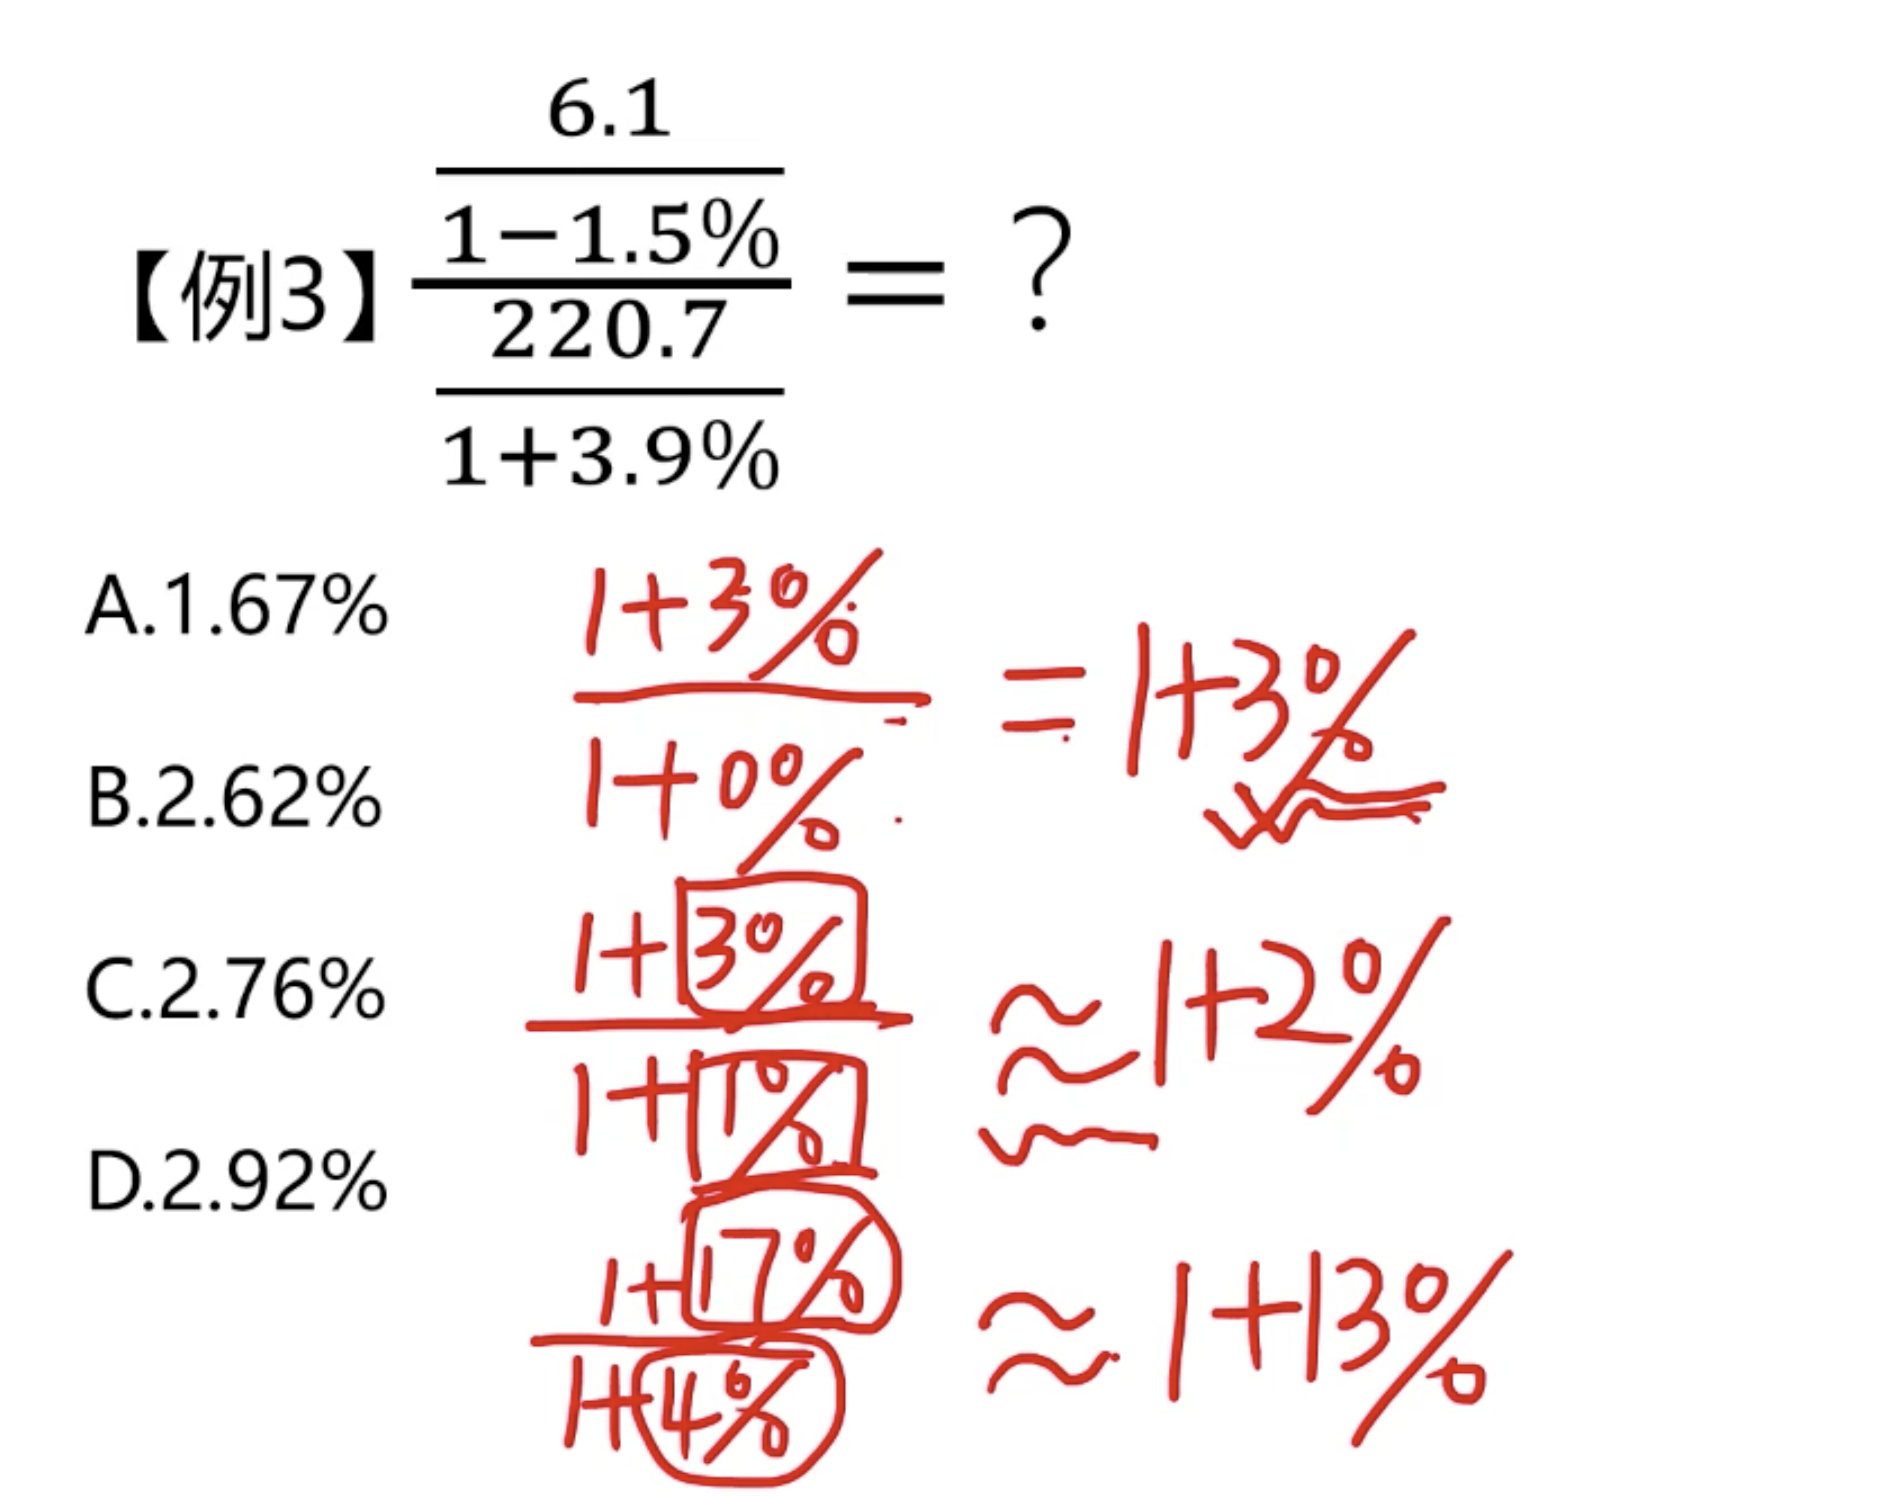 【例3】
6.1
1−1.5%
220.7
1+3.9%
= ?
A.1.67%
B.2.62%
C.2.76%
D.2.92%
1+3%
1+0%
= 1+3%
1+3%
1+1%
≈ 1+2%
1+17%
1+4%
≈ 1+13%